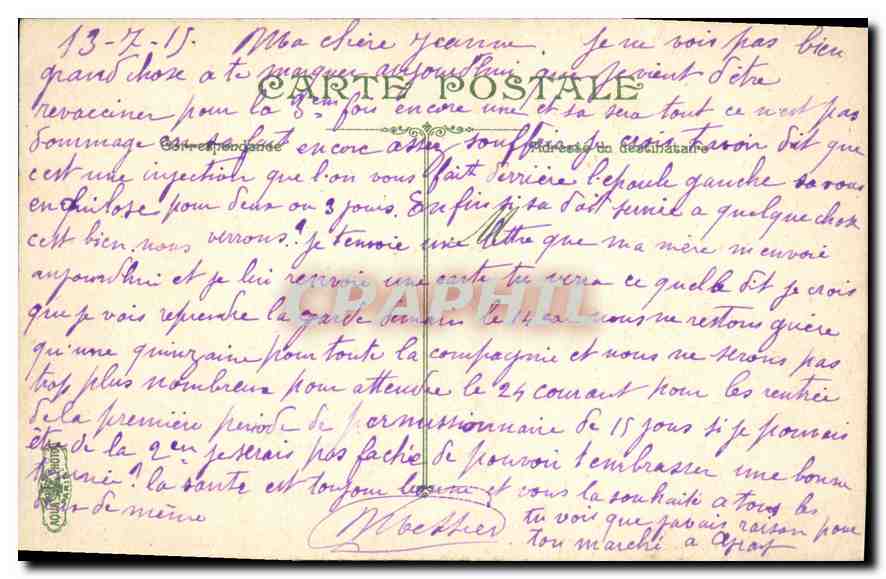 13-7-15. Ma chère Jeanne. Je ne vois pas bien
grand chose a te marquer aujourdhui que je vient d'être
CARTE POSTALE
revacciner pour la 3em fois encore une et sa sera tout ce n'est pas
dommage car sa fait encore assez souffrir je crois t'avoir dit que
Correspondance
Adresse du destinataire
c'est une injection que l'on vous fait derrière l'epaule gauche sa vous
enquilose pour deux ou 3 jours. Enfin si sa doit servir a quelque chose
c'est bien nous verrons? je t'envoie une lettre que ma mère m'envoie
aujourdhui et je lui renvoie une carte tu verra ce quelle dit je crois
que je vais reprendre la garde demain le 14 car nous ne restons guère
CPAPHIL
qu'une quinzaine pour toute la compagnie et nous ne serons pas
trop plus nombreux pour attendre le 24 courant pour les rentrée
de la première periode de permissionnaire de 15 jours si je pouvais
être de la 2em je serais pas faché de pouvoir t'embrasser une bonne
tournée? la santé est toujour bonne et vous la souhaite a tous les
deux de même
Messier
tu vois que j'avais raison pour
ton marché a
AQUA PHOTO
PARIS